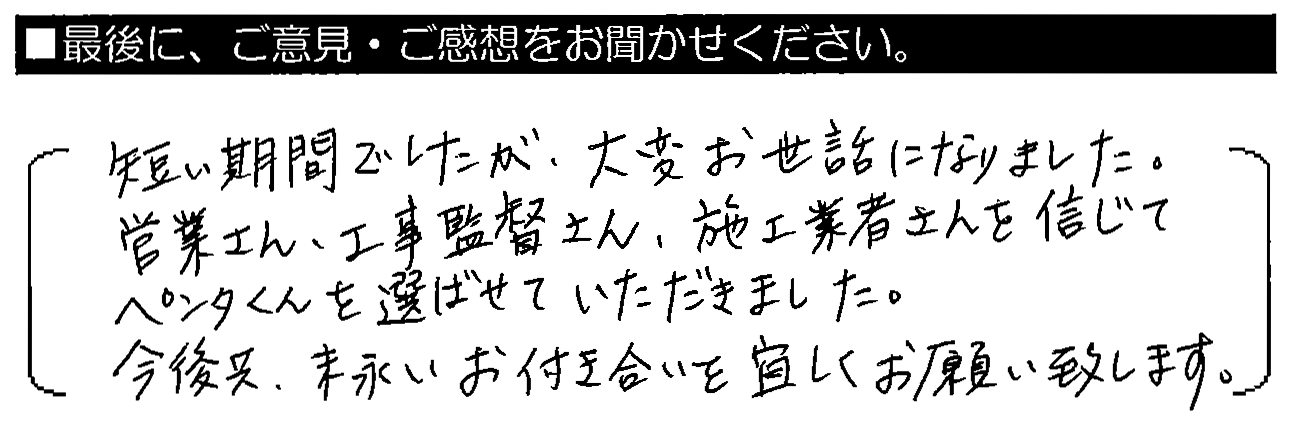 ■最後に、ご意見・ご感想をお聞かせください。
短い期間でしたが、大変お世話になりました。
営業さん、工事監督さん、施工業者さんを信じて
ペンタくんを選ばせていただきました。
今後共、末永いお付き合いを宜しくお願い致します。